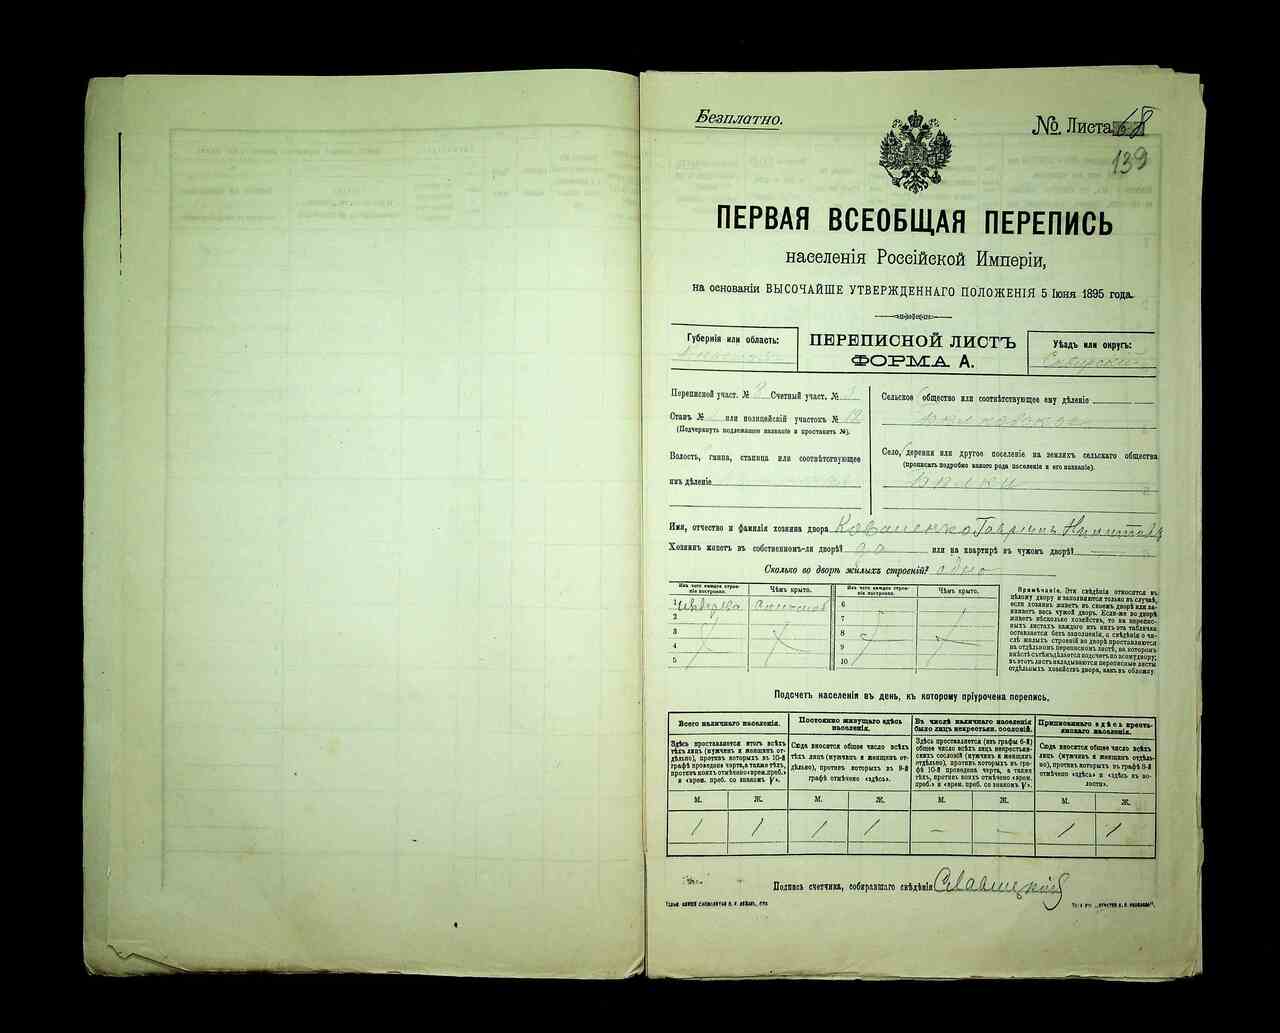 Безплатно.
№ Листа 68
139
ПЕРВАЯ ВСЕОБЩАЯ ПЕРЕПИСЬ
населенія Россійской Имперіи,
на основаніи ВЫСОЧАЙШЕ УТВЕРЖДЕННАГО ПОЛОЖЕНІЯ 5 Іюня 1895 года.
Губернія или область:
ПЕРЕПИСНОЙ ЛИСТЪ
ФОРМА А.
Уѣздъ или округъ:
Переписной участ. № 8 Счетный участ. № 3
Станъ № или полицейскій участокъ № 12
(Подчеркнуть подлежащее названіе и проставить №).
Волость, гмина, станица или соотвѣтствующее
имъ дѣленіе
Сельское общество или соотвѣтствующее ему дѣленіе
Село, деревня или другое поселеніе на земляхъ сельскаго общества
(прописать подробно какого рода поселеніе и его названіе).
Имя, отчество и фамилія хозяина двора Коваленко
Хозяинъ живетъ въ собственномъ-ли дворѣ? да или на квартирѣ въ чужомъ дворѣ?
Сколько во дворѣ жилыхъ строеній? одно
Изъ чего каждое строеніе построено. Чѣмъ крыто. Изъ чего каждое строеніе построено. Чѣмъ крыто.
1 6
2 7
3 8
4 9
5 10
Примѣчаніе. Эти свѣдѣнія относятся къ
цѣлому двору и заполняются только въ случаѣ,
если хозяинъ живетъ въ своемъ дворѣ или занимаетъ
весь чужой дворъ. Если-же во дворѣ
живетъ нѣсколько хозяйствъ, то на переписныхъ
листахъ каждаго изъ нихъ эта табличка
оставляется безъ заполненія, а свѣдѣнія о числѣ
жилыхъ строеній во дворѣ проставляются
на отдѣльномъ переписномъ листѣ, на которомъ
вмѣстѣ съ тѣмъ дѣлается подсчетъ по всему двору;
въ этотъ листъ вкладываются переписные листы
отдѣльныхъ хозяйствъ двора, какъ въ обложку.
Подсчетъ населенія въ день, къ которому пріурочена перепись.
Всего наличнаго населенія.
Здѣсь проставляется итогъ всѣхъ
тѣхъ лицъ (мужчинъ и женщинъ отдѣльно),
противъ которыхъ въ 10-й
графѣ проведена черта, а также тѣхъ,
противъ коихъ отмѣчено «врем. преб.»
и «врем. преб. со знакомъ V».
Постоянно живущаго здѣсь
населенія.
Сюда вносится общее число всѣхъ
тѣхъ лицъ (мужчинъ и женщинъ отдѣльно),
противъ которыхъ въ 9-й
графѣ отмѣчено «здѣсь».
Въ числѣ наличнаго населенія
было лицъ некрестьян. сословій.
Здѣсь проставляется (изъ графы 6-й)
общее число всѣхъ лицъ некрестьянскихъ
сословій (мужчинъ и женщинъ
отдѣльно), противъ которыхъ въ графѣ
10-й проведена черта, а также
тѣхъ, противъ коихъ отмѣчено «врем.
преб.» и «врем. преб. со знакомъ V».
Приписаннаго здѣсь крестьянскаго
населенія.
Сюда вносится общее число всѣхъ
тѣхъ лицъ (мужчинъ и женщинъ отдѣльно),
противъ которыхъ въ графѣ 8-й
отмѣчено «здѣсь» и «здѣсь въ волости».
М. Ж. М. Ж. М. Ж. М. Ж.
1 1 1 1 – – 1 1
Подпись счетчика, собиравшаго свѣдѣнія